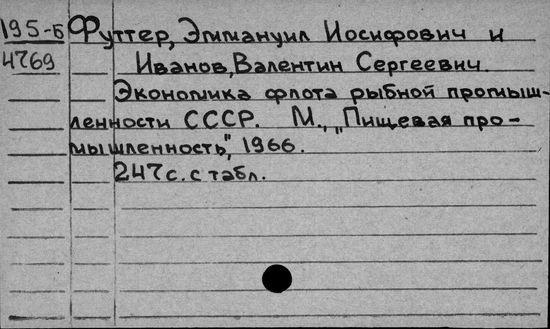 195-Б Футтер, Эммануил Иосифович и
4769 Иванов, Валентин Сергеевич.
Экономика флота рыбной промыш-
ленности СССР. М., "Пищевая про-
мышленность", 1966.
247с. с табл.